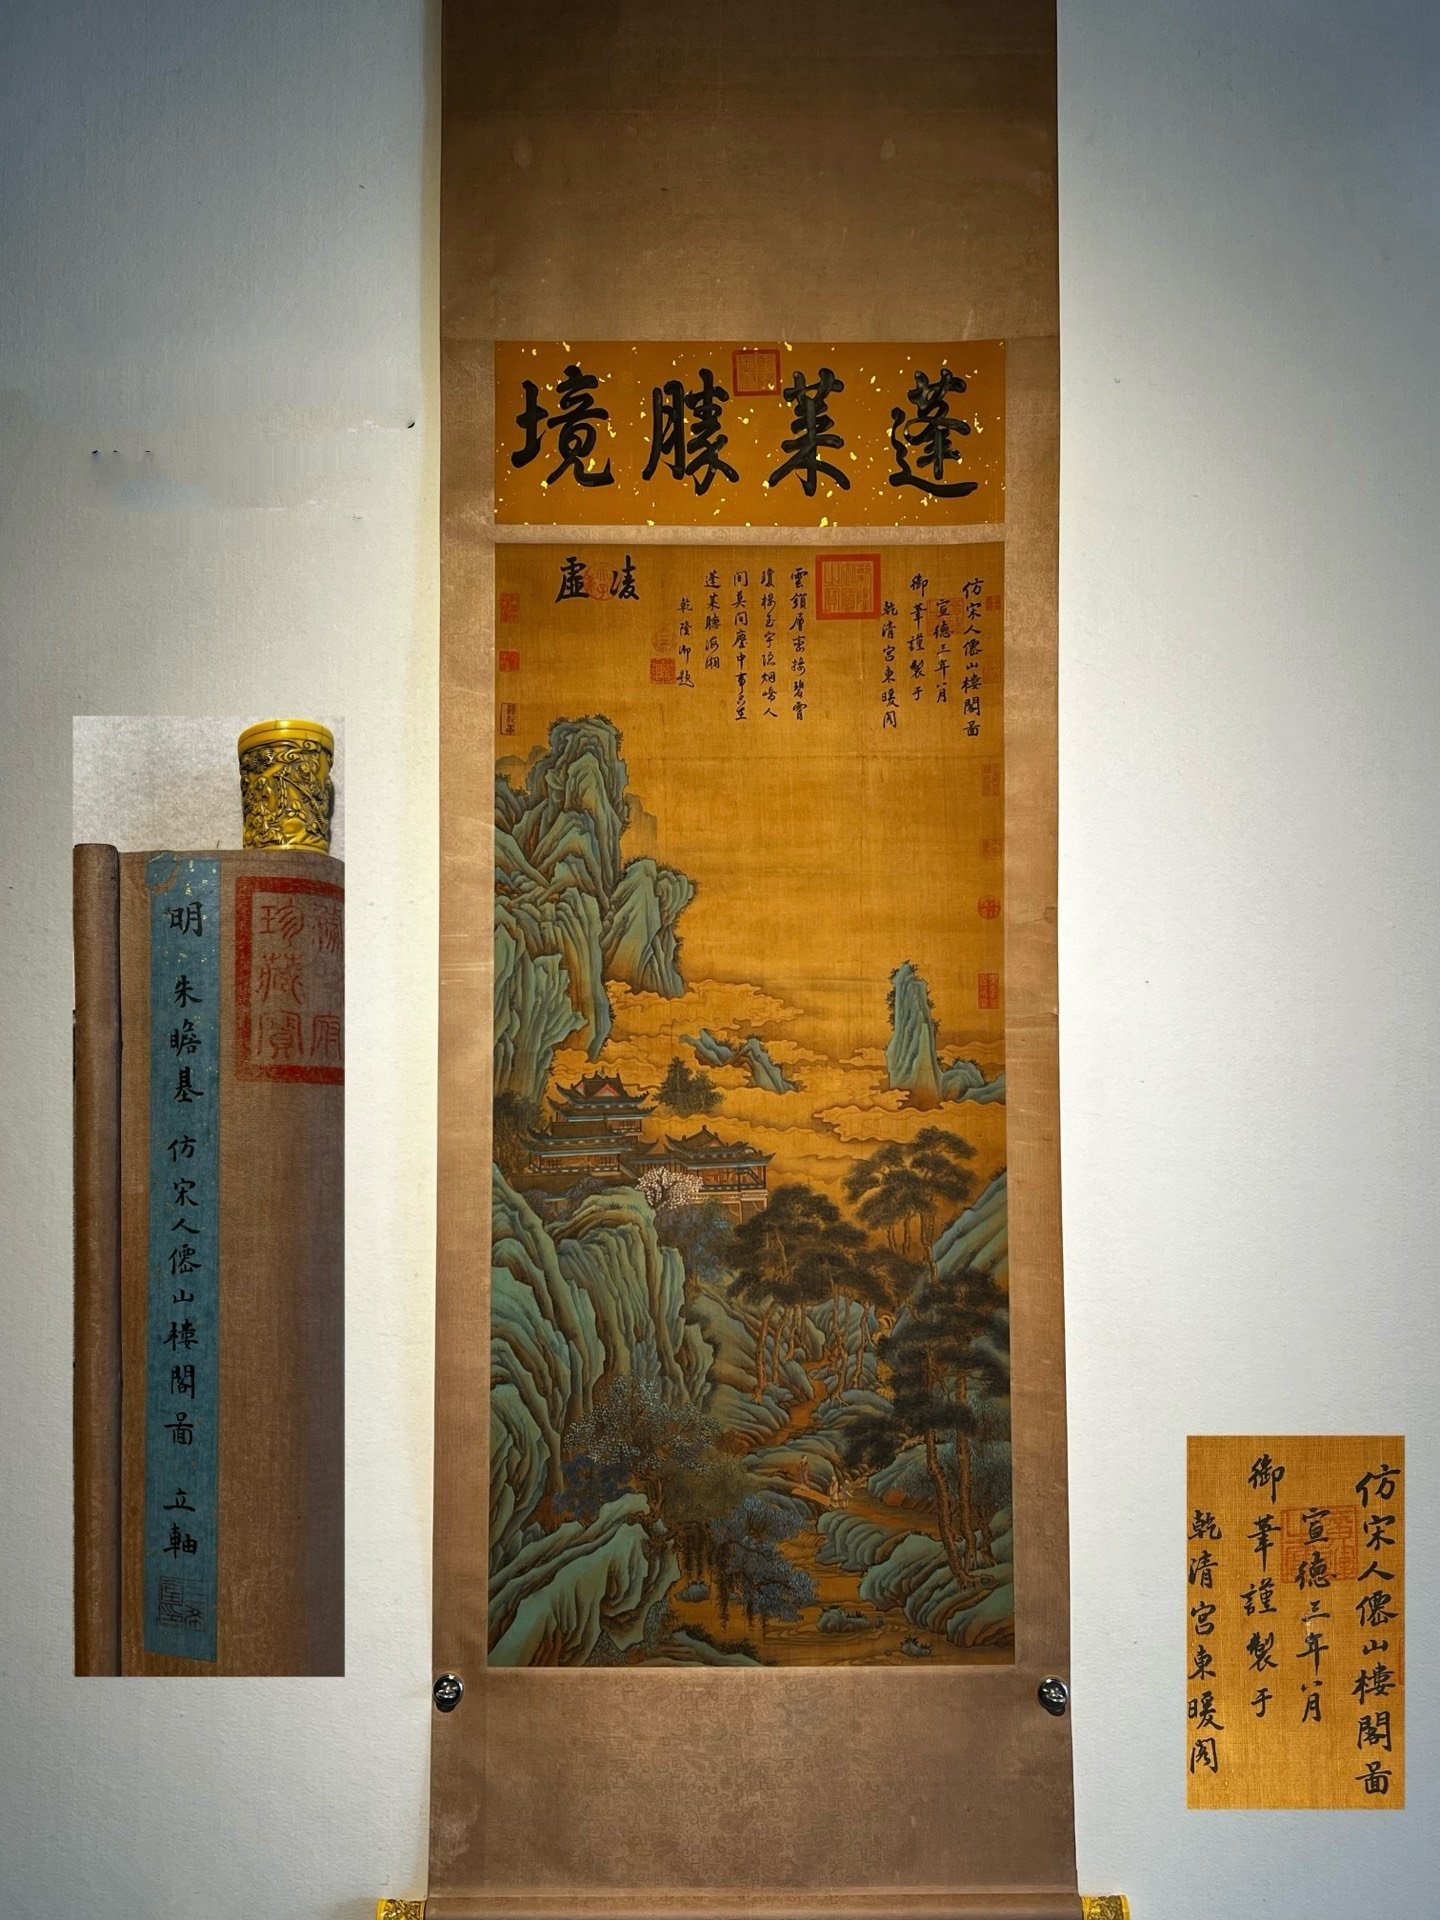 蓬萊勝境
仿宋人僊山樓閣啚
宣德三年八月
御筆謹製于
乾清宮東暖閣
雲鎖層巒接碧霄
瓊樓玉宇
人
間莫問塵中事
蓬萊聽海潮
乾隆御題
凌虛
明 朱瞻基 仿宋人僊山樓閣啚 立軸
珍藏寶
仿宋人僊山樓閣啚
宣德三年八月
御筆謹製于
乾清宮東暖閣